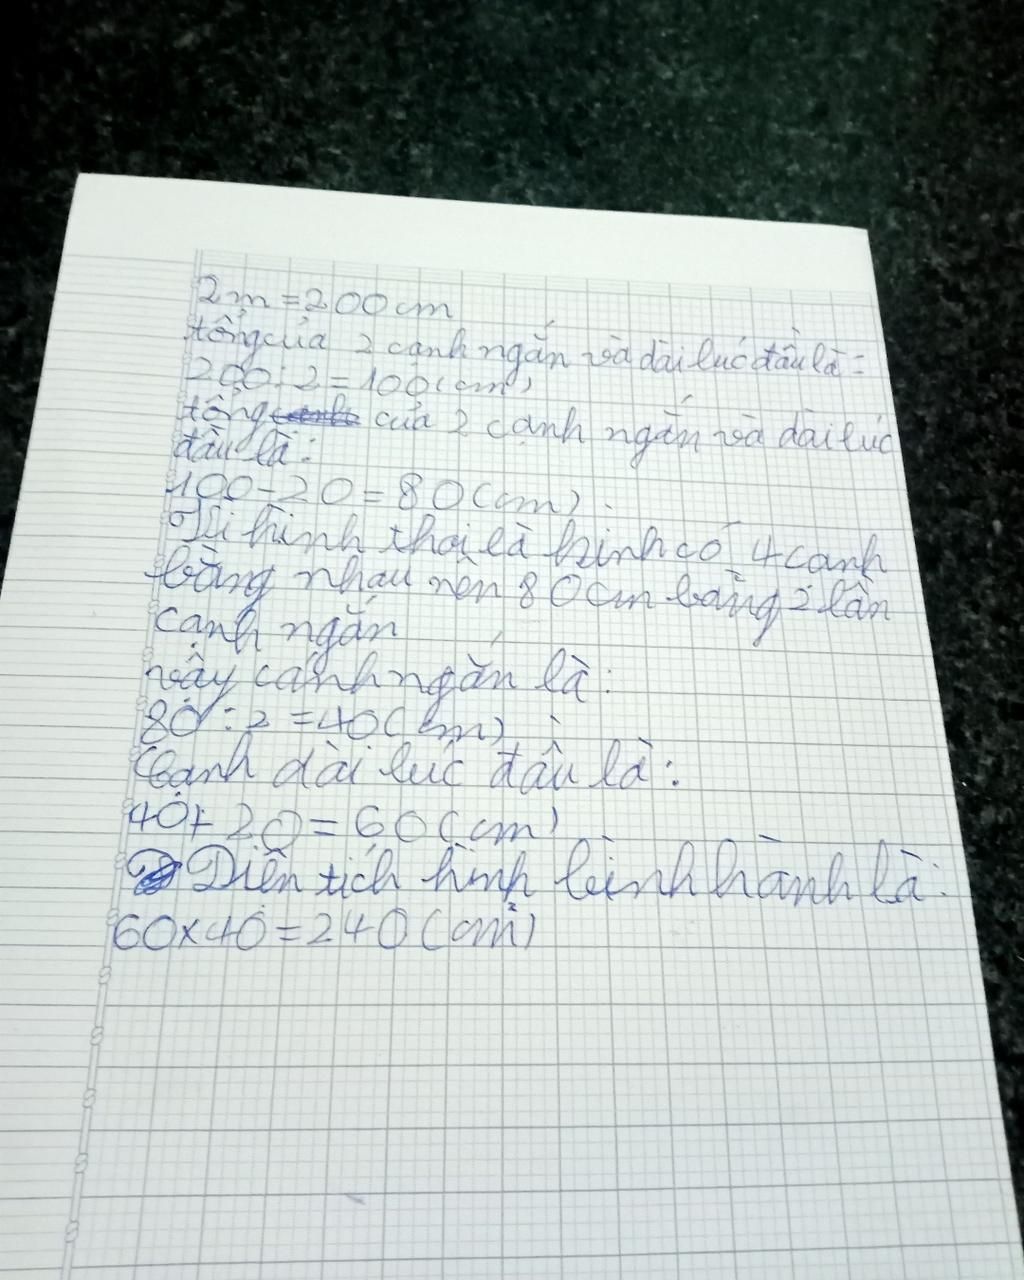 2m = 200cm
tổng của 2 cạnh ngắn và dài lúc đầu là:
200 : 2 = 100 (cm)
tổng của 2 cạnh ngắn và dài lúc
đầu là:
100 - 20 = 80 (cm)
Vì hình thoi là hình có 4 cạnh
bằng nhau nên 80cm bằng 2 lần
cạnh ngắn
vậy cánh ngắn là:
80 : 2 = 40 (cm)
Cạnh dài lúc đầu là:
40 + 20 = 60 (cm)
Diện tích hình bình hành là:
60 x 40 = 240 (cm²)